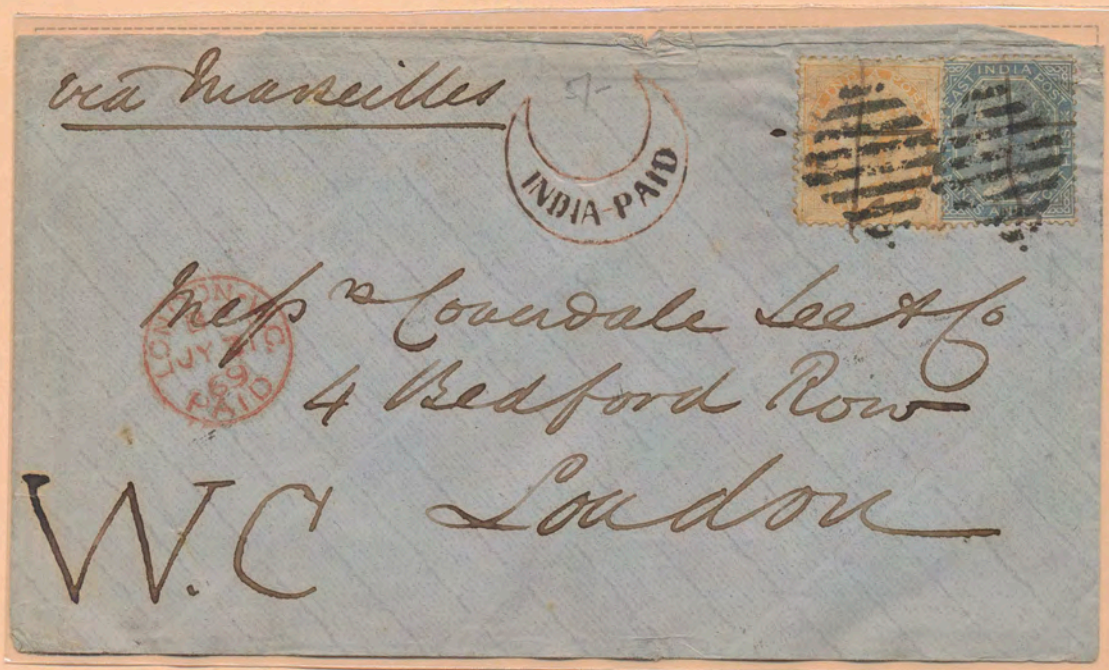 via Marseilles
5/-
INDIA-PAID
EAST INDIA POST
LONDON
JY
69
PAID
Messrs Coverdale Lee & Co
4 Bedford Row
London
W.C